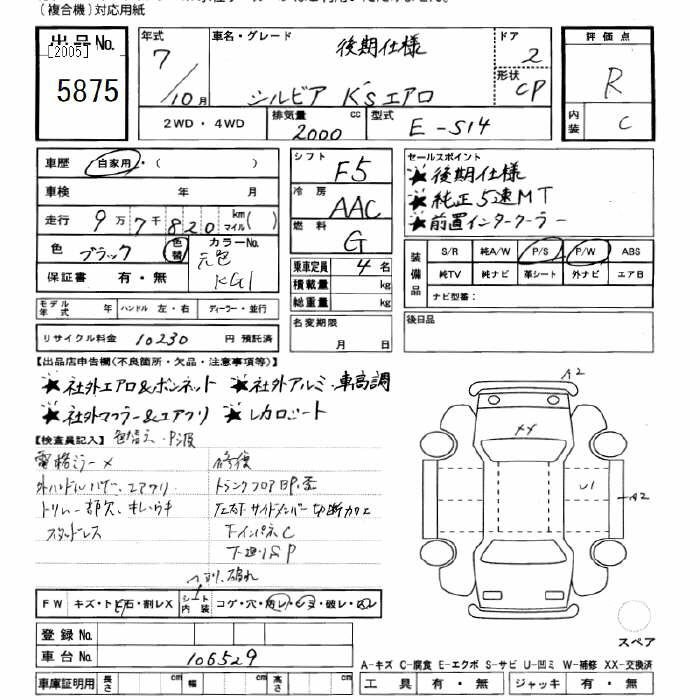 (複合機)対応用紙
出品No.
[2005]
5875
年式
7/10月
車名・グレード
後期仕様
シルビア K'sエアロ
ドア
2
形状
CP
評価点
R
内装
C
2WD・4WD
排気量
2000 cc
型式
E-S14
車歴 自家用・( )
車検 年 月
走行 9万7千820 km マイル( )
色 ブラック 色替
カラーNo.
元色
KG1
保証書 有・無
シフト
F5
冷房
AAC
燃料
G
乗車定員 4名
積載量 kg
総重量 kg
名変期限
月 日
セールスポイント
★後期仕様
★純正5速MT
★前置インタークーラー
装備品
S/R 純A/W P/S P/W ABS
純TV 純ナビ 革シート 外ナビ エアB
ナビ型番:
後日品
モデル年式 年 ハンドル 左・右 ディーラー・並行
リサイクル料金 10230 円 預託済
【出品店申告欄(不良箇所・欠品・注意事項等)】
★社外エアロ&ボンネット ★社外アルミ・車高調
★社外マフラー&エアクリ ★レカロシート
【検査員記入】 色替え
修復
トランクフロア
切断カエ
下インパネC
下廻りSP
FW キズ・トビ石・割レX
シート内装 コゲ・穴・汚レ・シミ・破レ・
登録No.
車台No. 106529
車庫証明用 長さ cm 幅 cm 高さ cm
A2
XX
U1
A2
スペア
A-キズ C-腐食 E-エクボ S-サビ U-凹ミ W-補修 XX-交換済
工具 有・無 ジャッキ 有・無